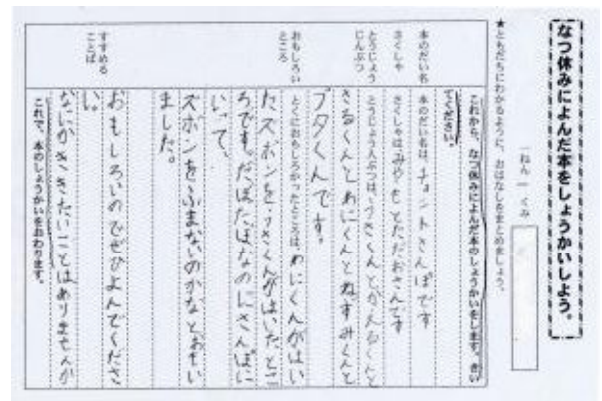 なつ休みによんだ本をしょうかいしよう。
一ねん 一くみ
★ともだちにわかるように、おはなしをまとめましょう。
これから、なつ休みによんだ本のしょうかいをします。きい
てください。
本のだい名
本のだい名は、チョントさんぽです
さくしゃ
さくしゃはみやもとただおさんです
とうじょう
じんぶつ
とうじょう人ぶつは、うさぎくんとかえるくんと
さるくんとわにくんとねずみくんと
ブタくんです。
おもしろい
ところ
とくにおもしろかったところは、わにくんがはい
たズボンをうさぎくんがはいたとこ
ろです。だぼだぼなのにさんぽに
いって、
ズボンをふまないのかなとおもい
ました。
すすめる
ことば
おもしろいのでぜひよんでくださ
い。
なにかききたいことはありませんか
これで、本のしょうかいをおわります。